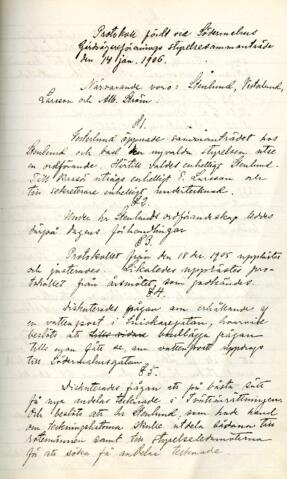 Protokoll fördt vid Södermalms
Gårdsägareförenings styrelsesammanträde
den 14 jan. 1906.
Närvarande voro: Stenlund, Vesterlund,
Larsson och Alb. Ström.
§1.
Vesterlund öppnade sammanträdet hos
Stenlund och bad den nyvalda styrelsen utse
en ordförande. Härtill valdes enhelligt Stenlund.
Till kassör utsågs enhelligt E. Larsson och
till sekreterare enhelligt undertecknad.
§2.
Under hr Stenlunds ordförandeskap leddes
därpå dagens förhandlingar
§3.
Protokollet från den 18 dec. 1905 upplästes
och justerades. Likaledes upplästes pro-
tokollet från årsmötet, som godkändes.
§4.
Diskuterades frågan om erhållandes af
en vattenpost i Snickaregatan, hvarvid
beslöts att tills vidare bordlägga frågan
tills man såge, om vattenposten uppdrogs
till Södermalmsgatan.
§5.
Diskuterades frågan att på bästa sätt
få nya andelar tecknade i Tvättinrättningen.
Och beslöts att hr Stenlund, som hade hand
om teckningslistorna skulle utdela sådana till
rotemännen samt till styrelseledamöterna
för att söka få andelar tecknade.